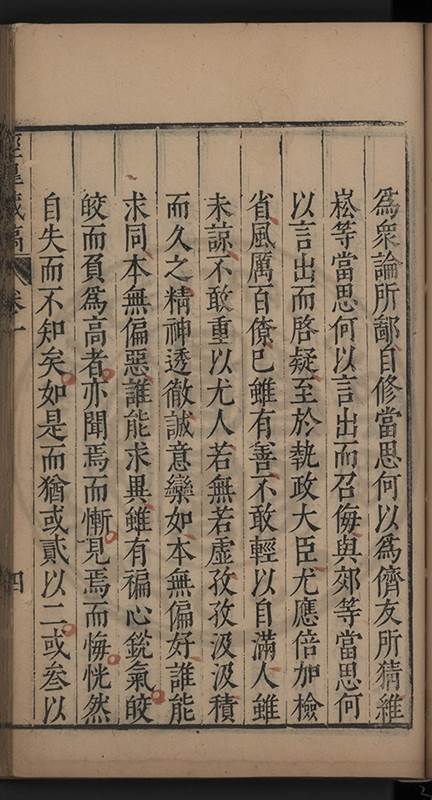 為衆論所鄙自修當思何以為儕友所猜維
崧等當思何以言出而召侮與郊等當思何
以言出而啓疑至於執政大臣尤應倍加檢
省風厲百僚已雖有善不敢輕以自滿人雖
未諒不敢重以尤人若無若虛孜孜汲汲積
而久之精神透徹誠意孌如本無偏好誰能
求同本無偏惡誰能求異雖有褊心銳氣皎
皎而負為高者亦聞焉而慚見焉而悔恍然
自失而不知矣如是而猶或貳以二或叁以
卷一
四